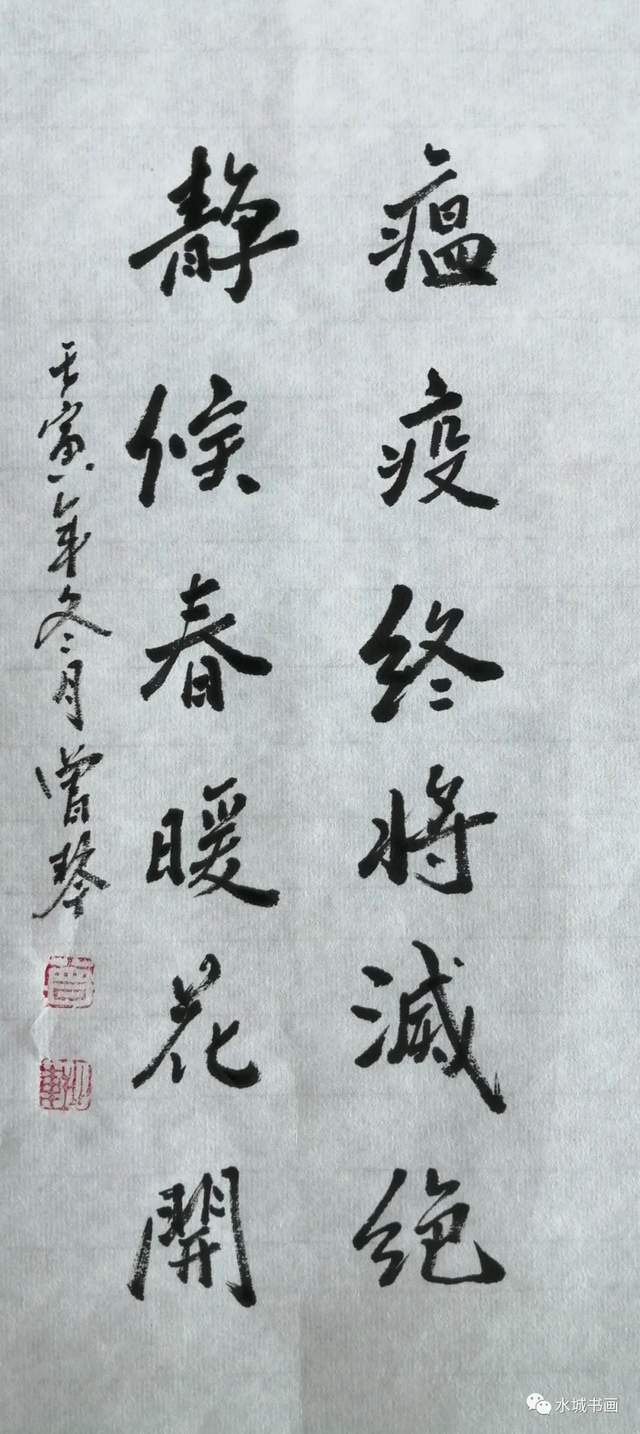 瘟疫终将滅绝
静候春暖花開
壬寅年冬月曾琴
水城书画